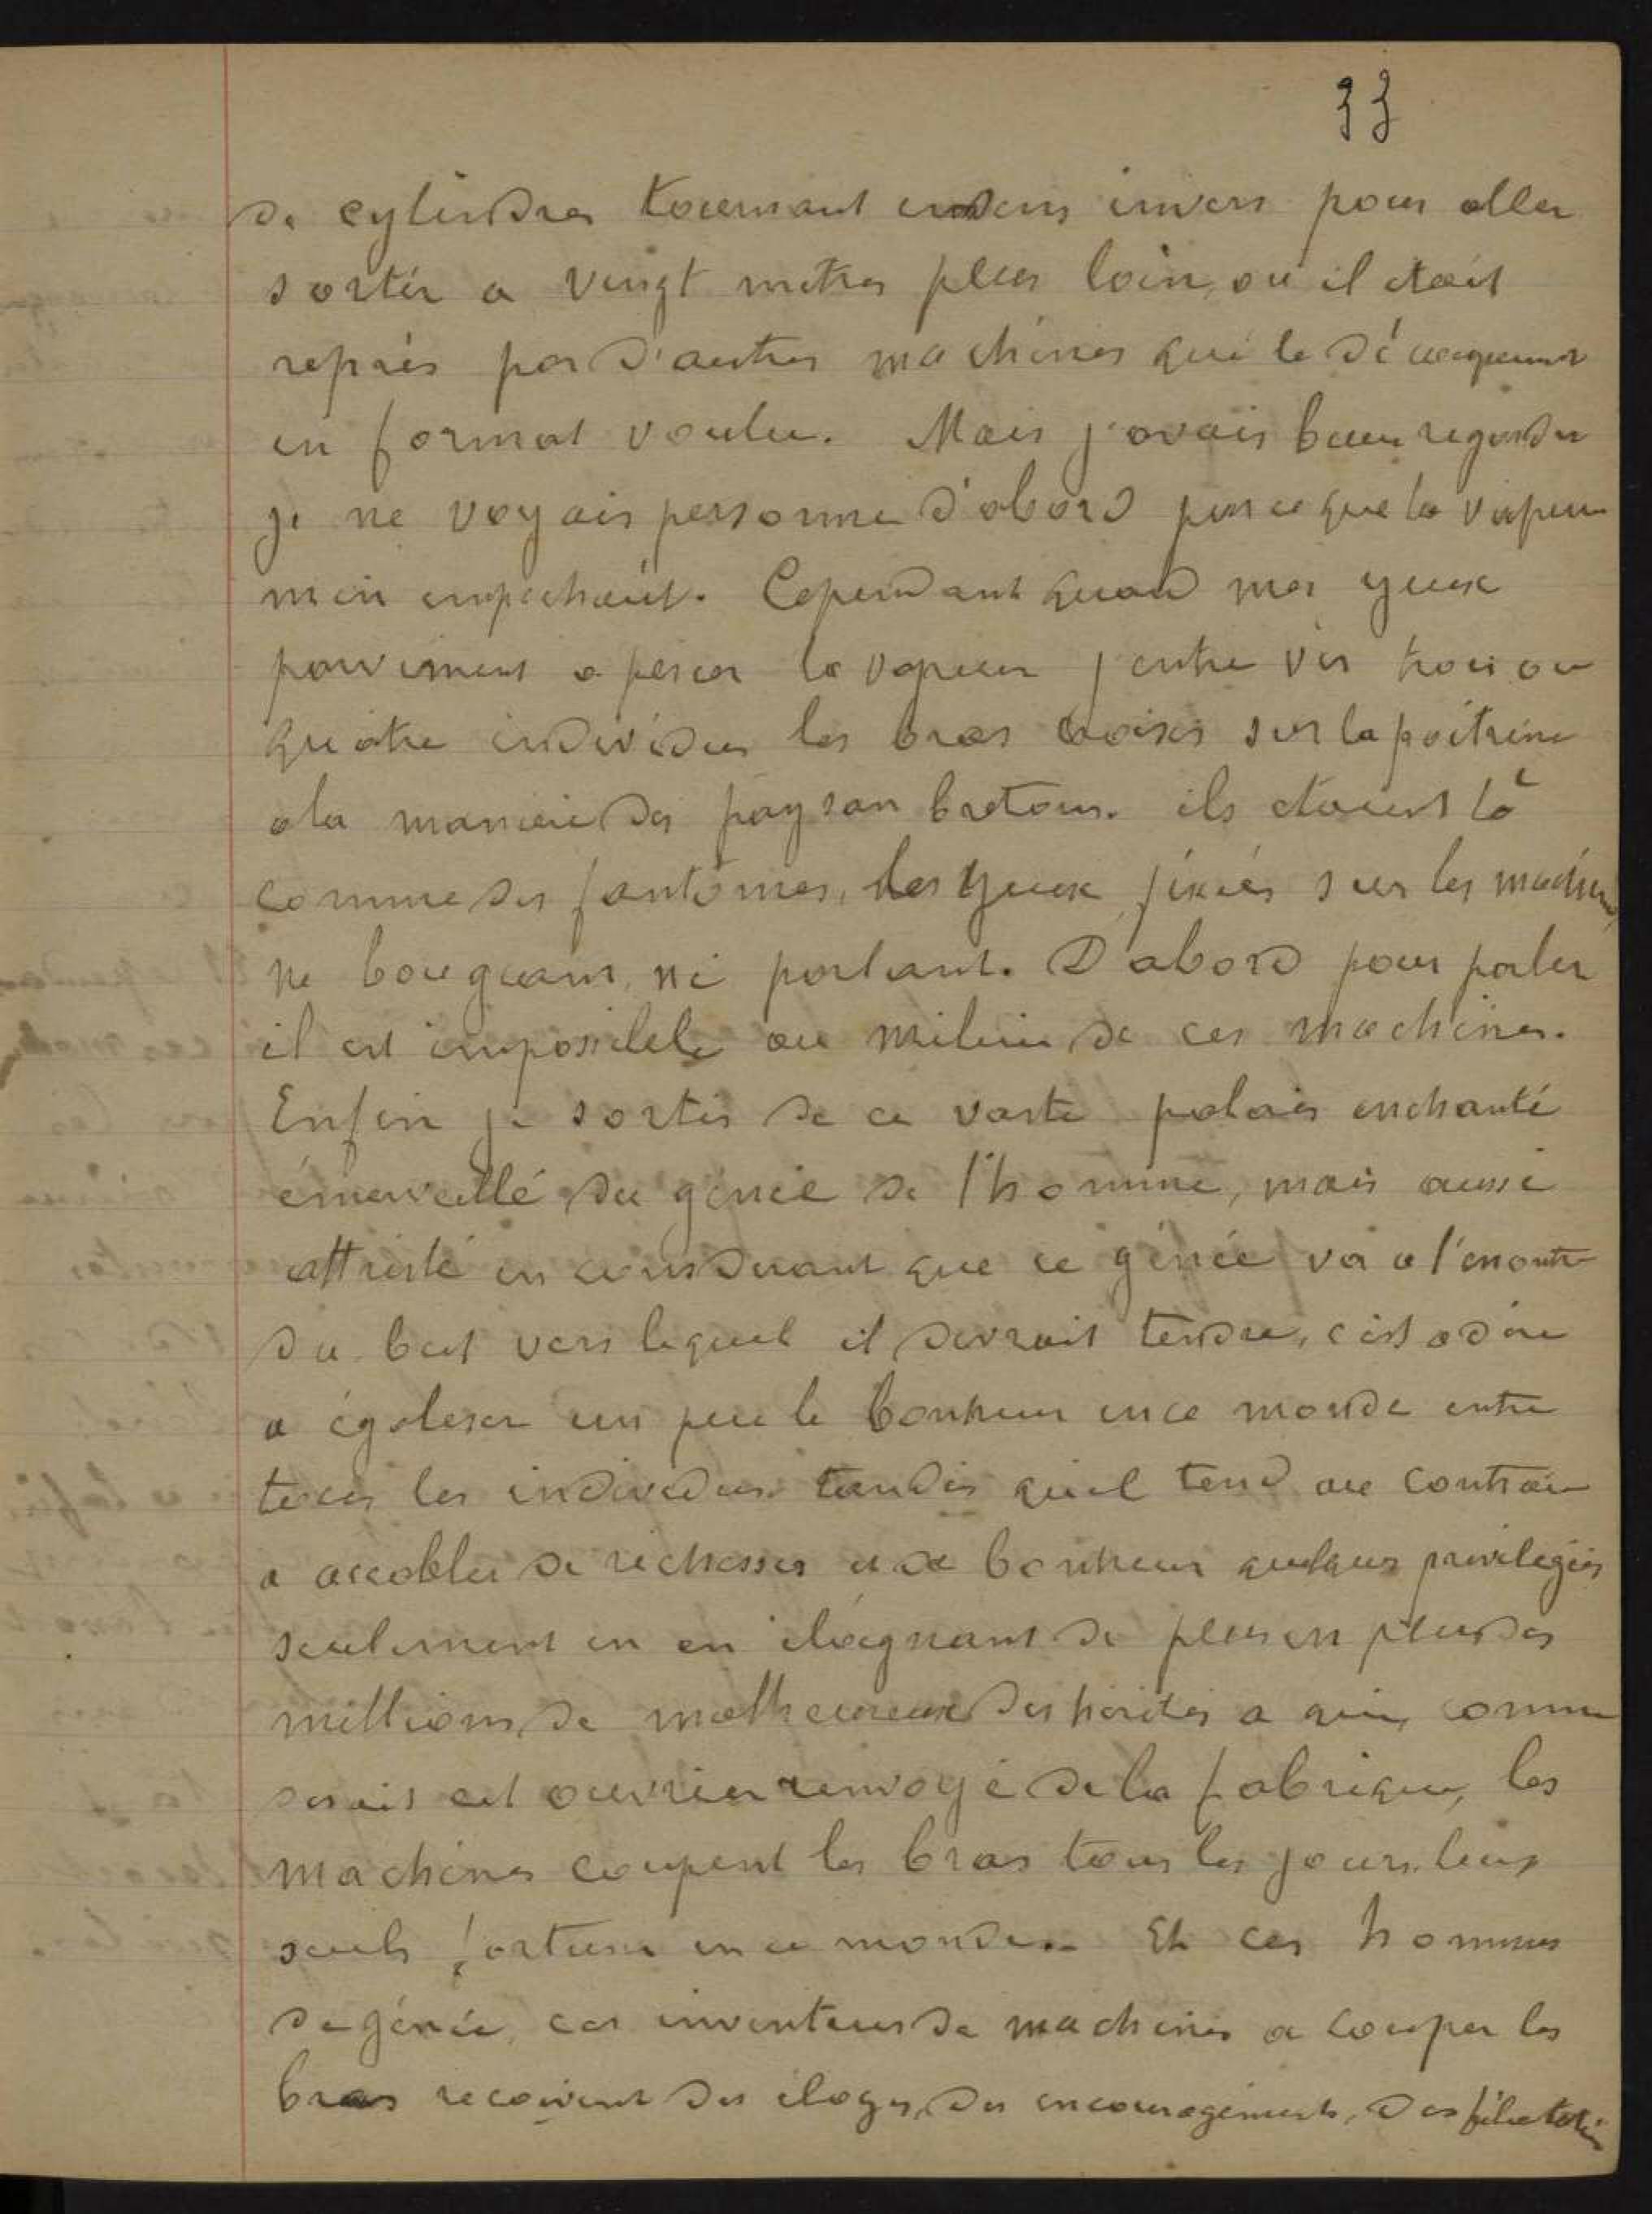 33
de cylindres tournant en sens invers pour aller
sortir a vingt mètres plus loin, ou il était
repris par d'autres machines qui le découpaient
en format voulu. Mais j'avais beau regarder
je ne voyais personne d'abord parce que la vapeur
m'en empechait. Cependant quand mes yeux
parvinrent a percer la vapeur j'entre vis trois ou
quatre individus les bras croisés sur la poitrine
a la maniere des paysan bretons. ils étaient là
comme des fantômes, les yeux fixés sur les machines
ne bougeant, ni parlant. D'abord pour parler
il est impossible au milieu de ces machines.
Enfin je sortis de ce vaste palais enchanté
émerveillé du génie de l'homme, mais aussi
attristé en considerant que ce génie va a l'encontre
du but vers lequel il devrait tendre, c'est a dire
a égaliser un peu le bonheur en ce monde entre
tous les individus. tandis qu'il tend au contraire
a accabler de richesses et de bonheur quelques privilegiés
seulement en en éloignant de plus en plus des
millions de malheureux desherités a qui, comme
disait cet ouvrier renvoyé de la fabrique, les
machines coupent les bras tous les jours. leurs
seuls fortune en ce monde. Et ces hommes
de génie, ces inventeurs de machines a couper les
bras recoivent des éloges, des encouragements, des